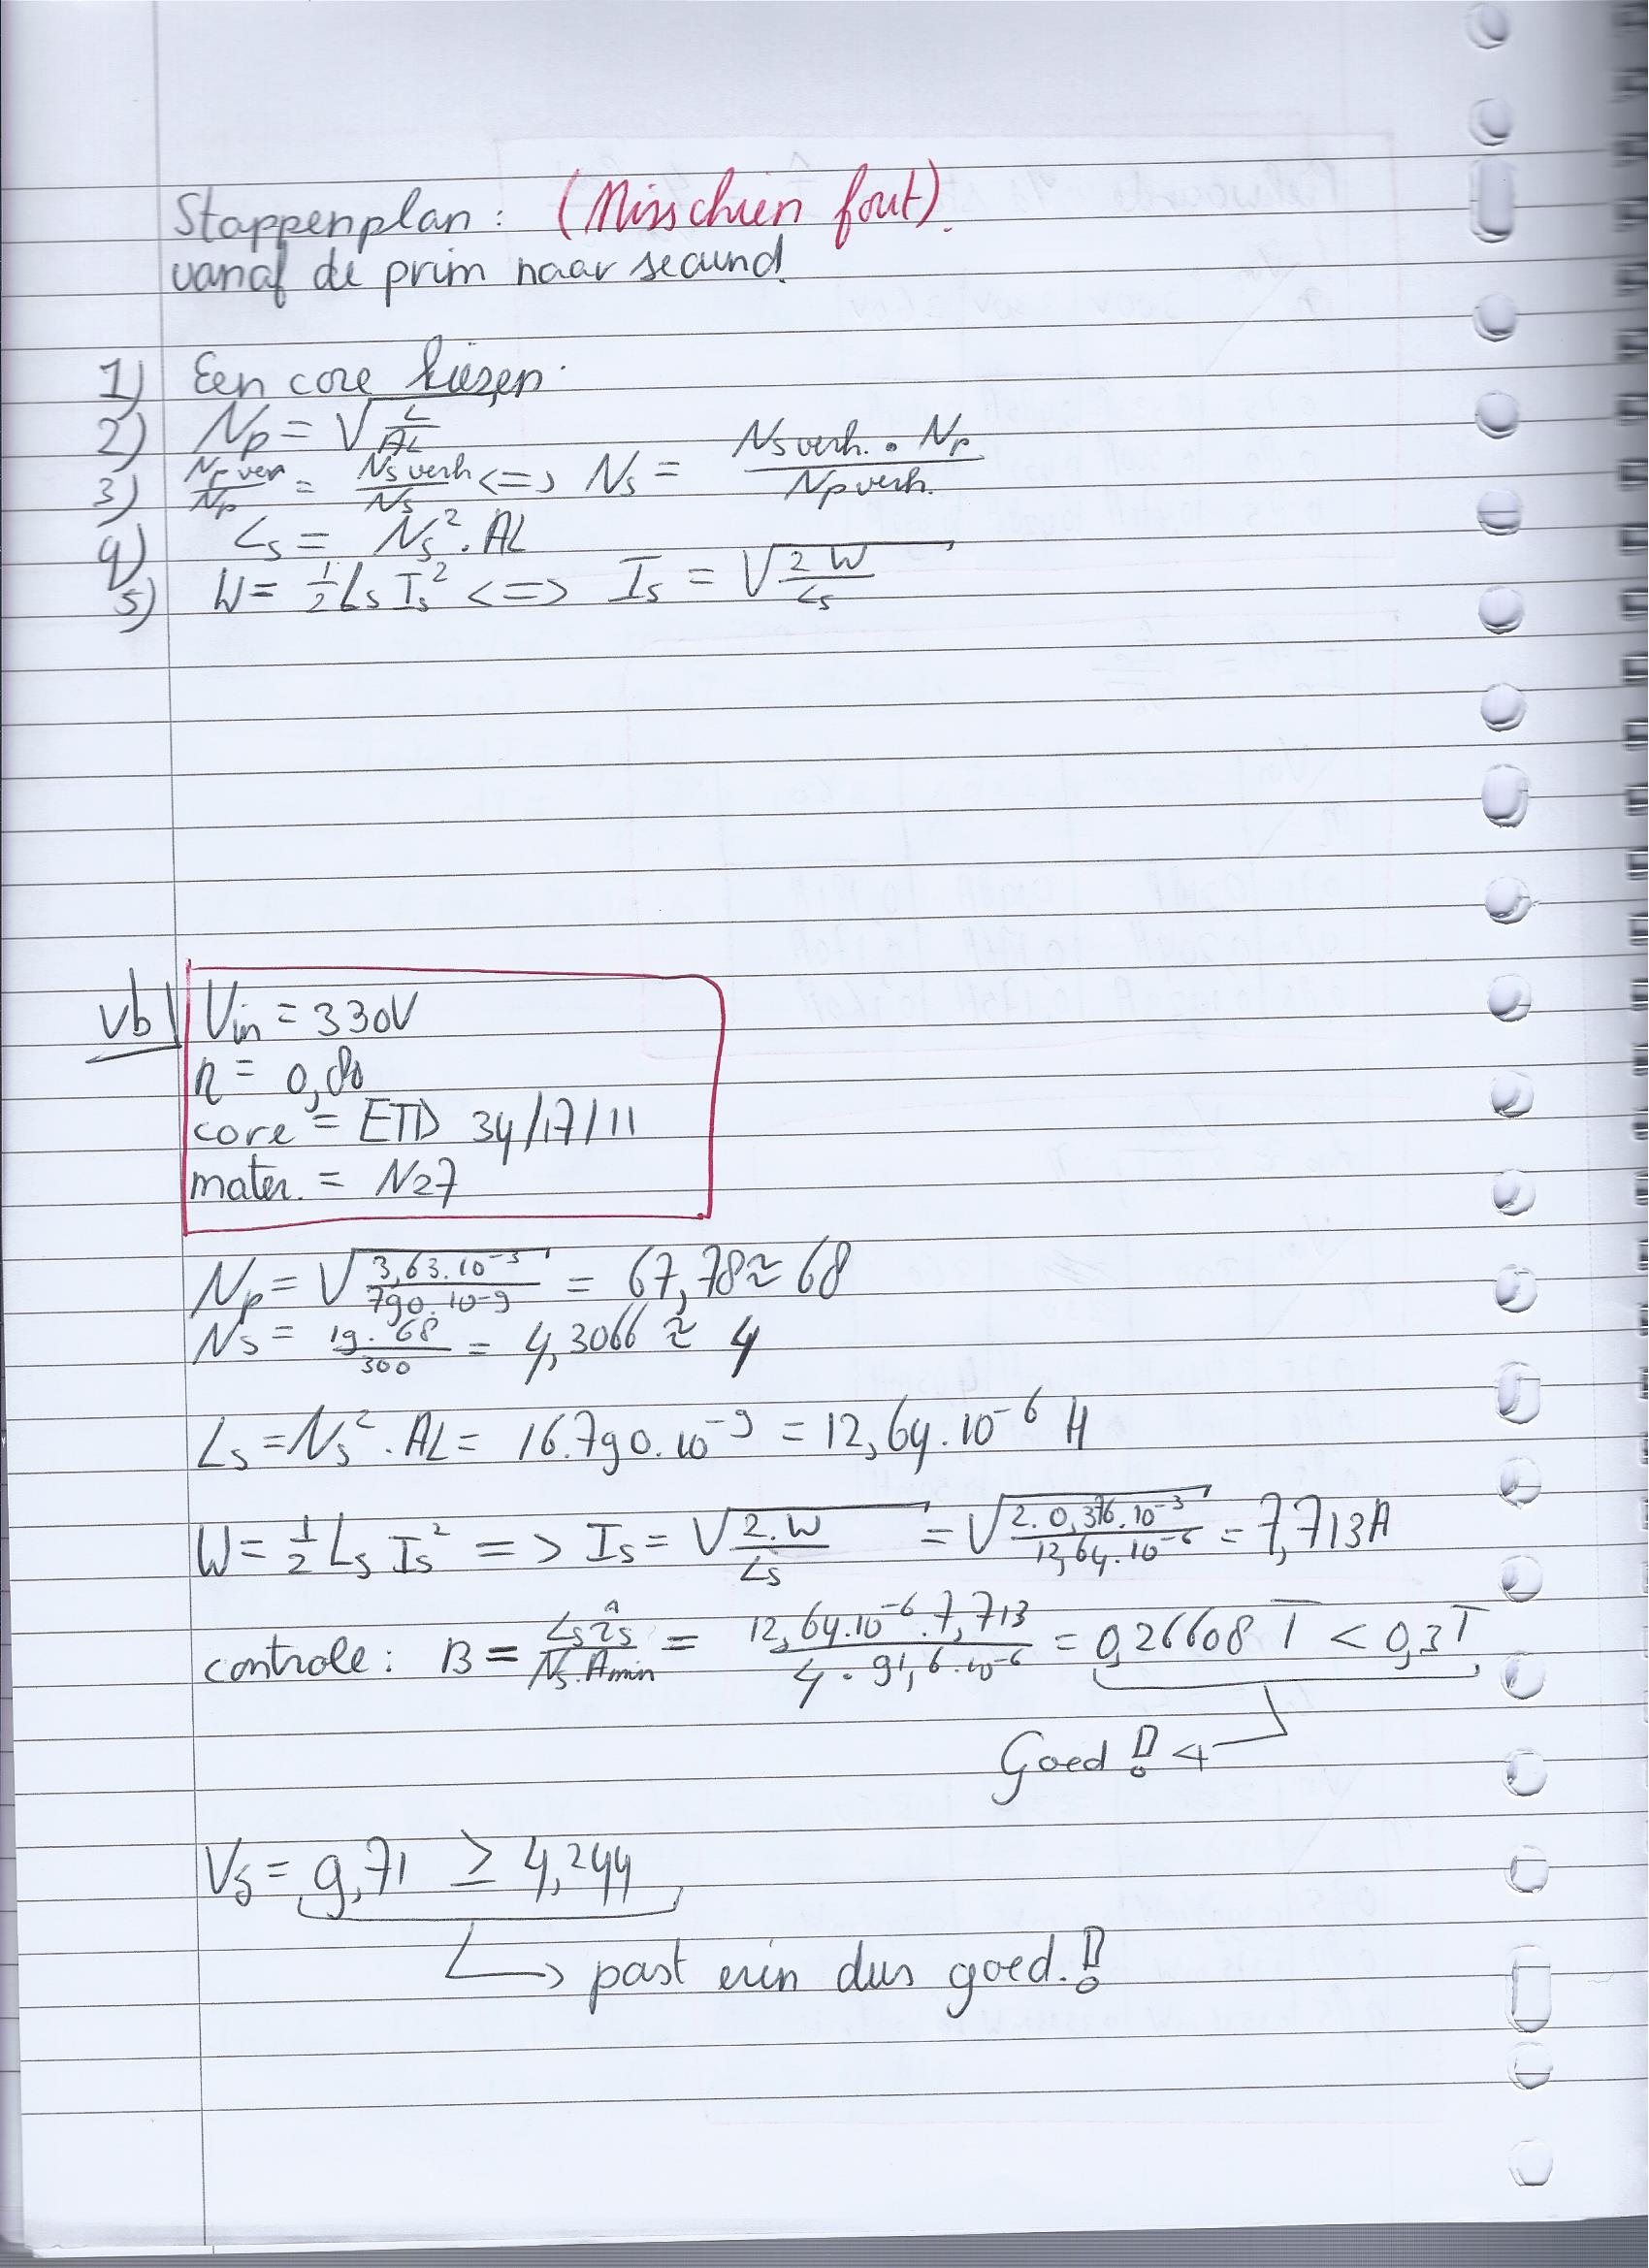 Stappenplan: (Misschien fout).
vanaf de prim naar secund.
1) Een core kiezen.
2) Np = √(L/AL)
3) Np ver/Np = Ns verh/Ns <=> Ns = Ns verh. · Np/Np verh.
4) Ls = Ns². AL
5) W = ½ Ls Is² <=> Is = √(2 W/Ls)
vb) Vin = 330V
η = 0,80
core = ETD 34/17/11
mater. = N27
Np = √(3,63.10⁻³/790.10⁻⁹) = 67,78 ≈ 68
Ns = 19. 68/300 = 4,3066 ≈ 4
Ls = Ns². AL = 16.790.10⁻⁹ = 12,64.10⁻⁶ H
W = ½ Ls Is² => Is = √(2.W/Ls) = √(2.0,376.10⁻³/12,64.10⁻⁶) = 7,713A
controle: B = Ls îs/Ns.Amin = 12,64.10⁻⁶.7,713/4 . 91,6.10⁻⁶ = 0,26608 T < 0,3T
Goed!
Vs = 9,71 ≥ 4,244
past erin dus goed.!